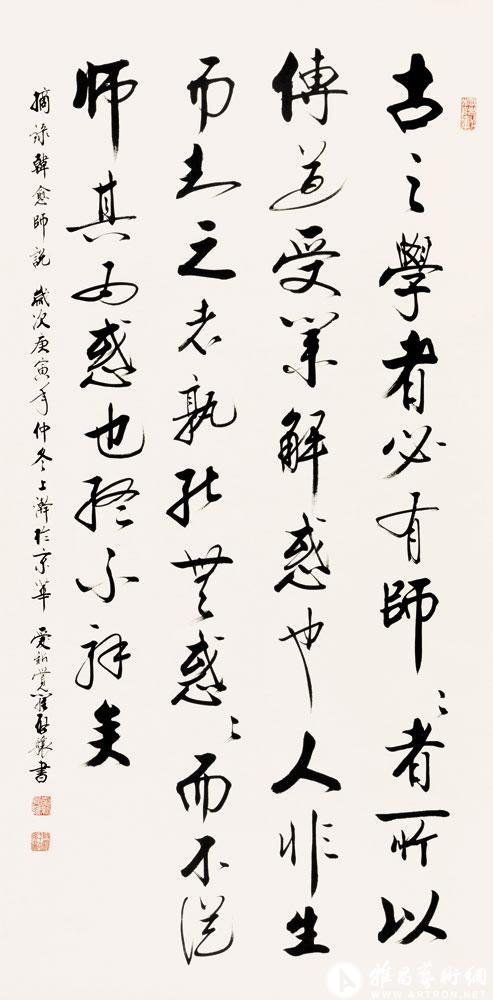 古之學者必有師〻者所以
傳道受業解惑也人非生
而知之者孰能無惑〻而不從
師其為惑也終不解矣
摘录韓愈師説 歲次庚寅年仲冬上澣於京華 愛新覺羅啟驤書
雅昌藝術網
WWW.ARTRON.NET